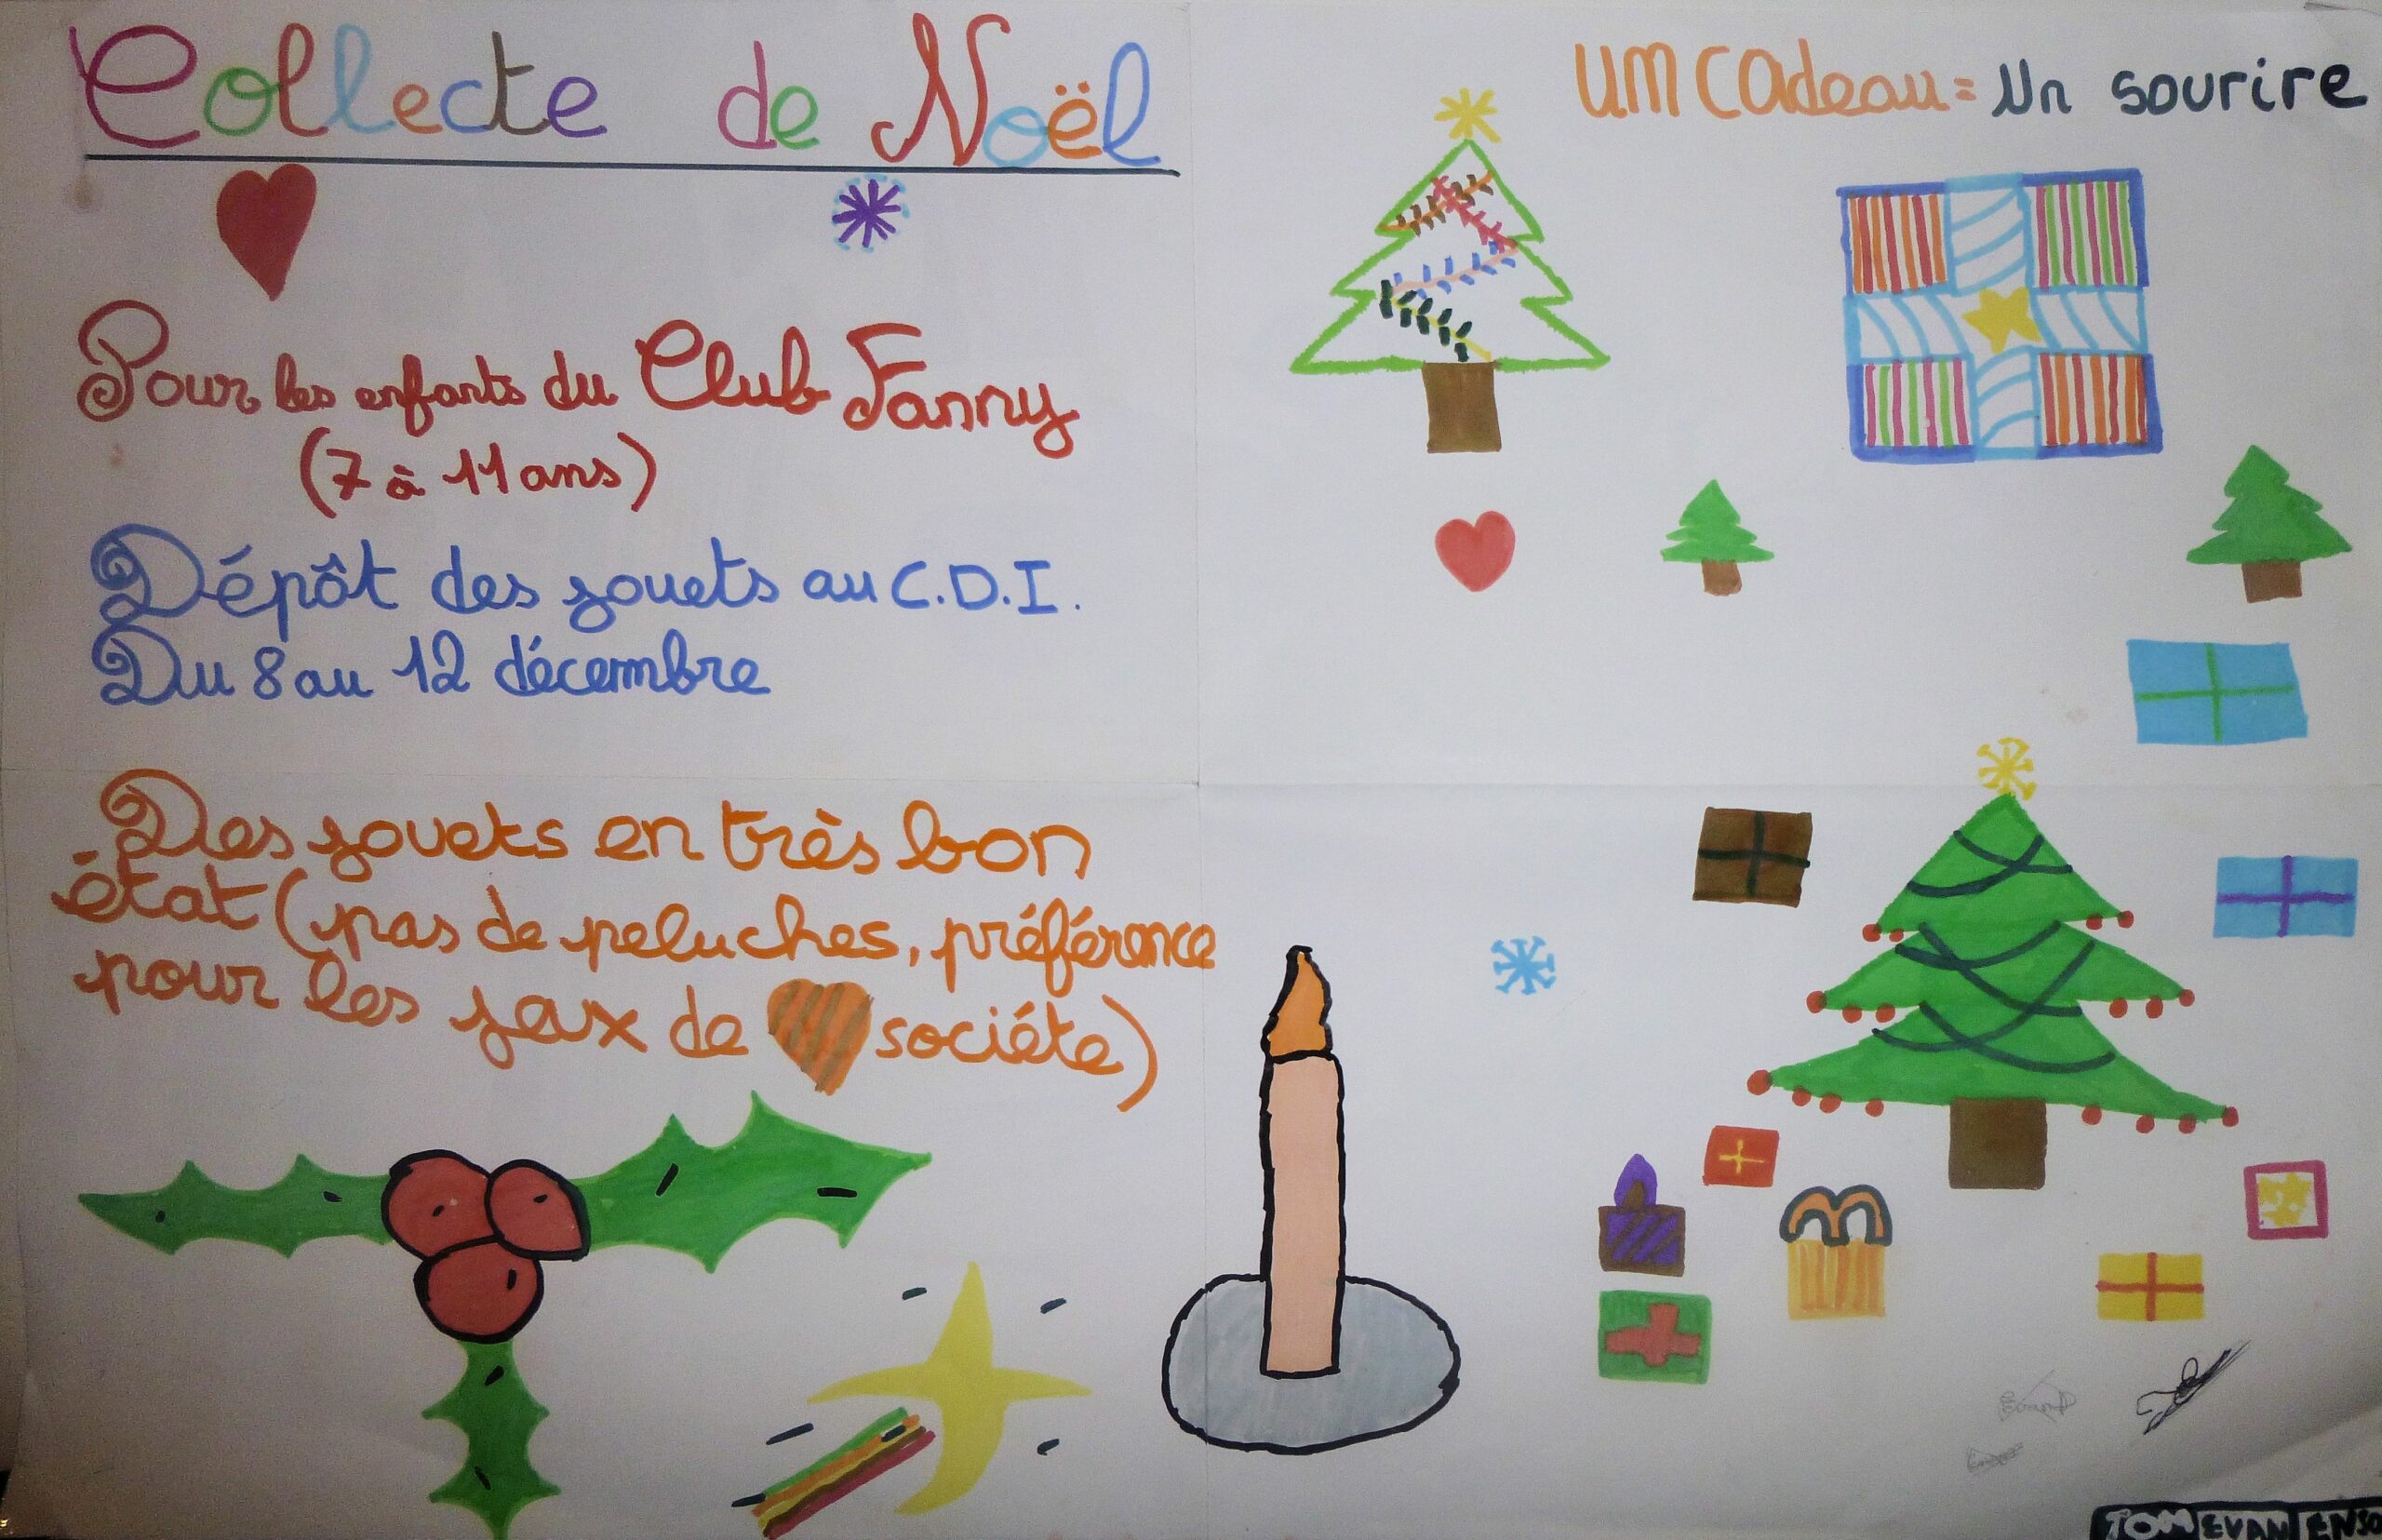 Collecte de Noël
un cadeau = Un sourire
Pour les enfants du Club Fanny
(7 à 11 ans)
Dépôt des jouets au C.D.I.
Du 8 au 12 décembre
Des jouets en très bon
état (pas de peluches, préférence
pour les jeux de sociéte)
TOM EVAN ENSO